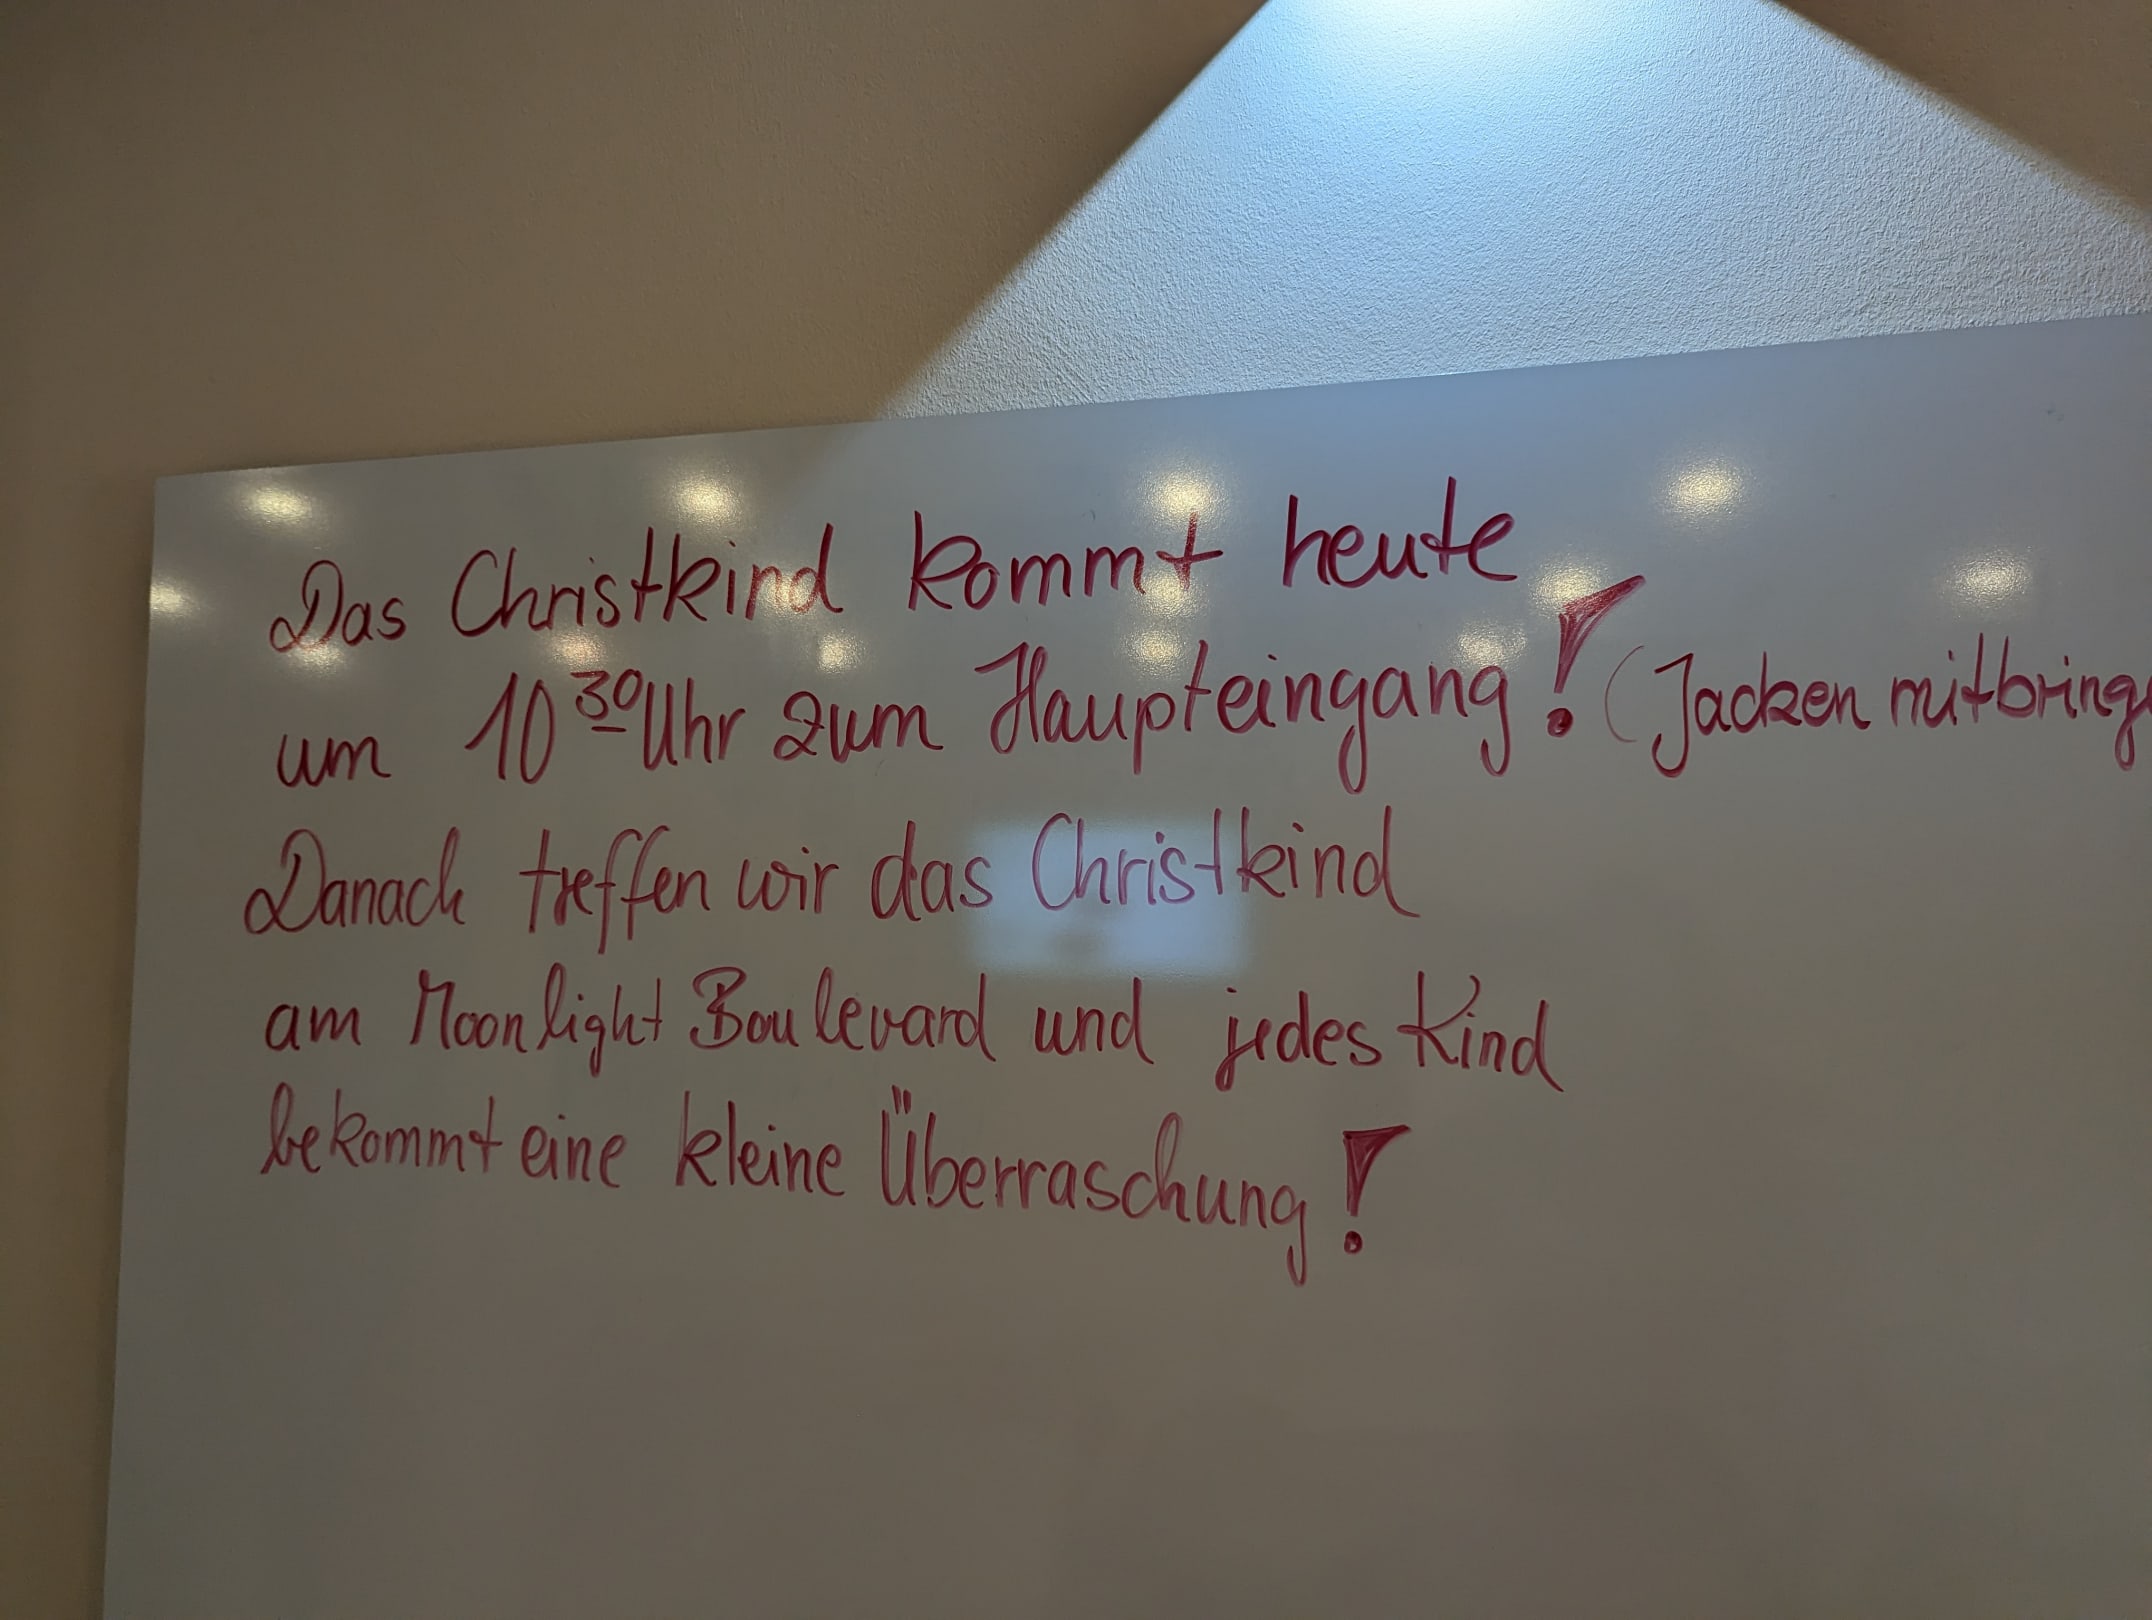 Das Christkind kommt heute
um 10 30 Uhr zum Haupteingang! (Jacken mitbringe
Danach treffen wir das Christkind
am Moonlight Boulevard und jedes Kind
bekommt eine kleine Überraschung!